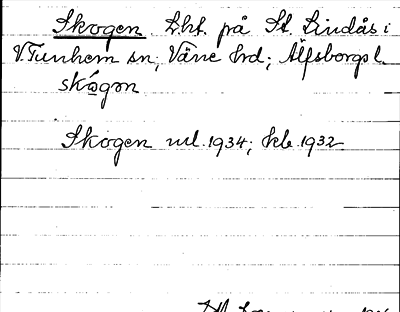 Skogen. Lht. på St. Lindås i
V. Tunhem sn, Väne hd; Älfsborgs l.
skógən
Skogen ml. 1934; kb. 1932